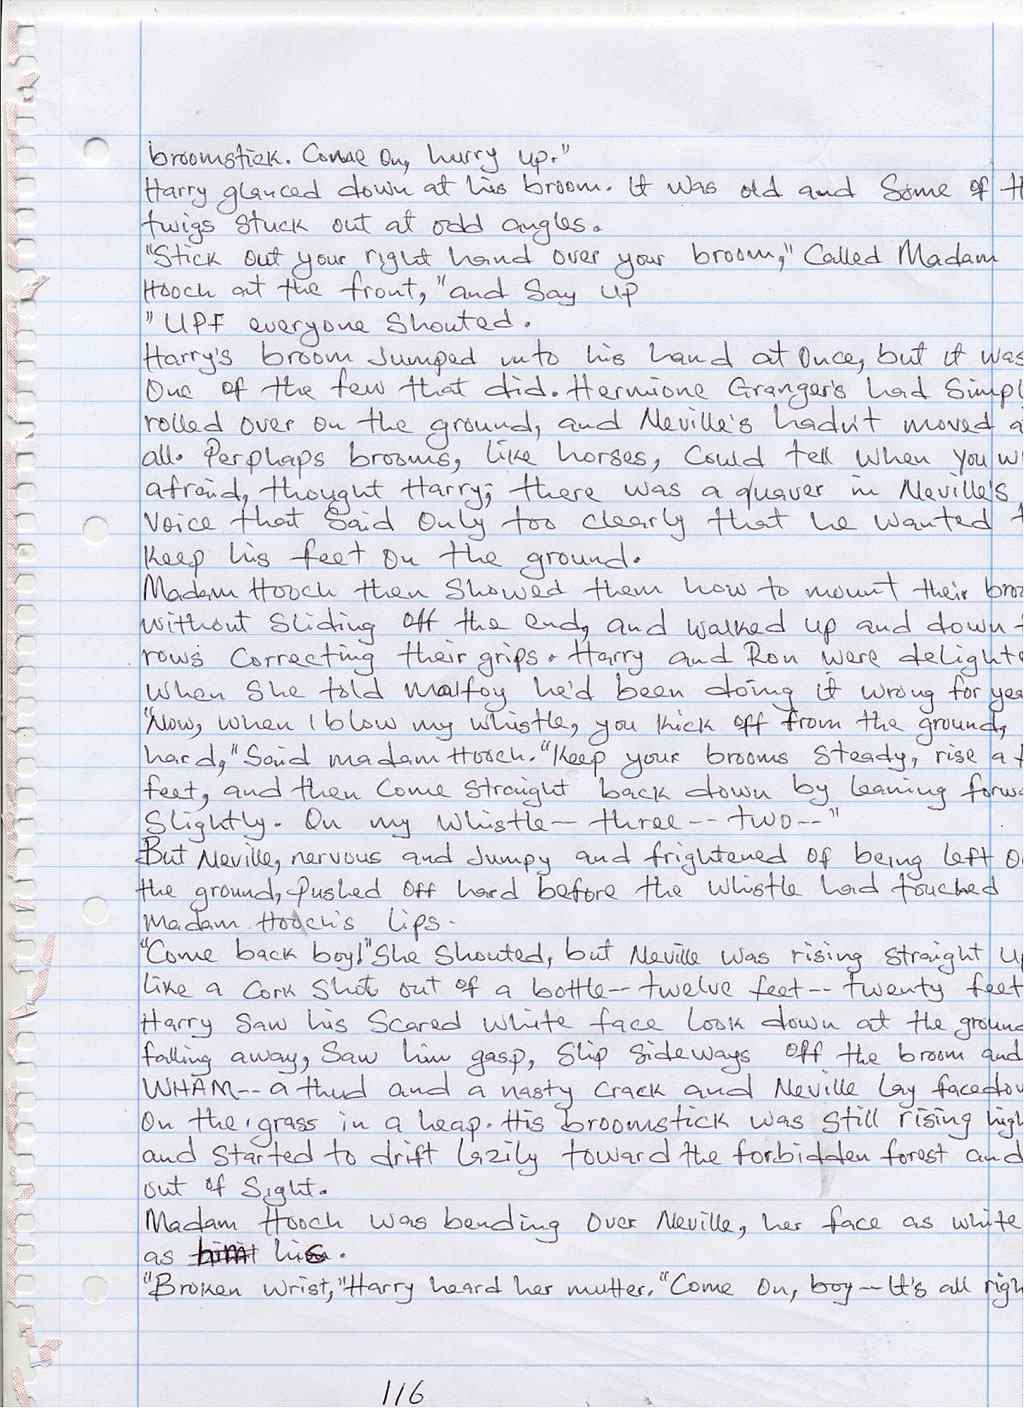 broomstick. Come on, hurry up."
Harry glanced down at his broom. It was old and Some of th
twigs stuck out at odd angles.
"Stick out your right hand over your broom," Called Madam
Hooch at the front, "and Say Up
" UPF everyone Shouted.
Harry's broom Jumped into his hand at Once, but it was
One of the few that did. Hermione Granger's had Simpl
rolled over on the ground, and Neville's hadn't moved a
all. Perphaps brooms, like horses, Could tell when you w
afraid, thought Harry; there was a quaver in Neville's
Voice that Said Only too clearly that he wanted t
Keep his feet on the ground.
Madam Hooch then Showed them how to mount their broo
without Sliding off the end, and walked up and down t
rows Correcting their grips. Harry and Ron were delighte
when She told Malfoy he'd been doing it wrong for yea
"Now, when I blow my whistle, you Kick off from the ground,
hard," Said madam Hooch. "Keep your brooms Steady, rise a f
feet, and then Come Straight back down by leaning forwa
Slightly. On my whistle— three-- two--"
But Neville, nervous and Jumpy and frightened of being left o
the ground, Pushed Off hard before the whistle had touched
Madam Hooch's lips.
"Come back boy!" She Shouted, but Neville was rising Straight up
like a Cork Shot out of a bottle-- twelve feet-- twenty feet
Harry Saw his Scared white face Look down at the ground
falling away, Saw him gasp, Slip Sideways off the broom and
WHAM-- a thud and a nasty Crack and Neville Lay facedow
On the grass in a heap. His broomstick was still rising high
and Started to drift Lazily toward the forbidden forest and
out of Sight.
Madam Hooch was bending Over Neville, her face as white
as him his.
"Broken wrist," Harry heard her mutter. "Come On, boy-- It's all righ
116